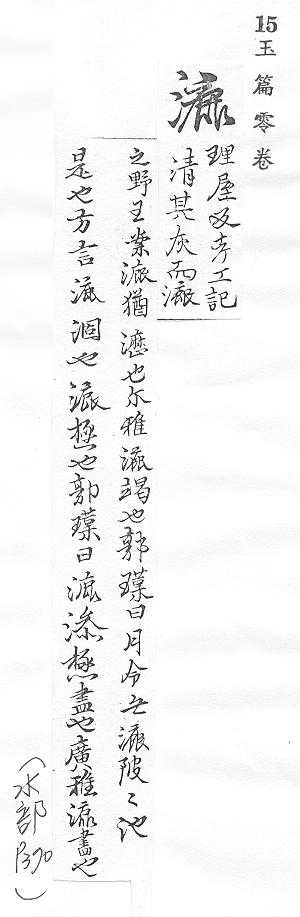 15玉篇零卷
漉
理屋反考工記
清其灰而漉
之野王案漉猶瀝也尒雅漉竭也郭璞曰月令无漉陂〻池
是也方言漉涸也漉極也郭璞曰漉滲極盡也廣雅漉盡也
(水部 P370)